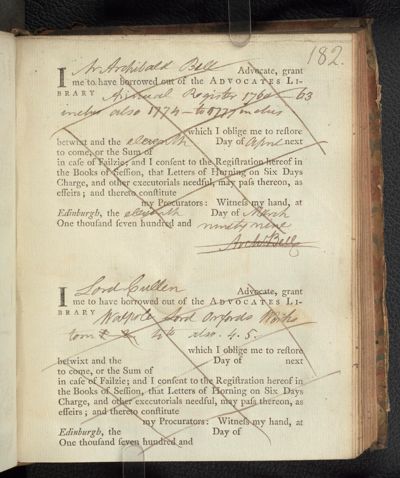 182.
I Mr Archibald Bell Advocate, grant
me to have borrowed out of the ADVOCATES LI-
BRARY Annual Register 1760 – 63
inclus also 1774 – to 1777 inclus
which I oblige me to reſtore
betwixt and the eleventh Day of April next
to come, or the Sum of
in caſe of Failzie; and I conſent to the Regiſtration hereof in
the Books of Seſſion, that Letters of Horning on Six Days
Charge, and other executorials needful, may paſs thereon, as
effeirs; and thereto conſtitute
my Procurators: Witneſs my hand, at
Edinburgh, the eleventh Day of March
One thouſand ſeven hundred and ninety nine
Archd Bell
I Lord Cullen Advocate, grant
me to have borrowed out of the ADVOCATES LI-
BRARY Walpole Lord Orfords Works
tom 4to also. 4. 5.
which I oblige me to reſtore
betwixt and the Day of next
to come, or the Sum of
in caſe of Failzie; and I conſent to the Regiſtration hereof in
the Books of Seſſion, that Letters of Horning on Six Days
Charge, and other executorials needful, may paſs thereon, as
effeirs; and thereto conſtitute
my Procurators: Witneſs my hand, at
Edinburgh, the Day of
One thouſand ſeven hundred and